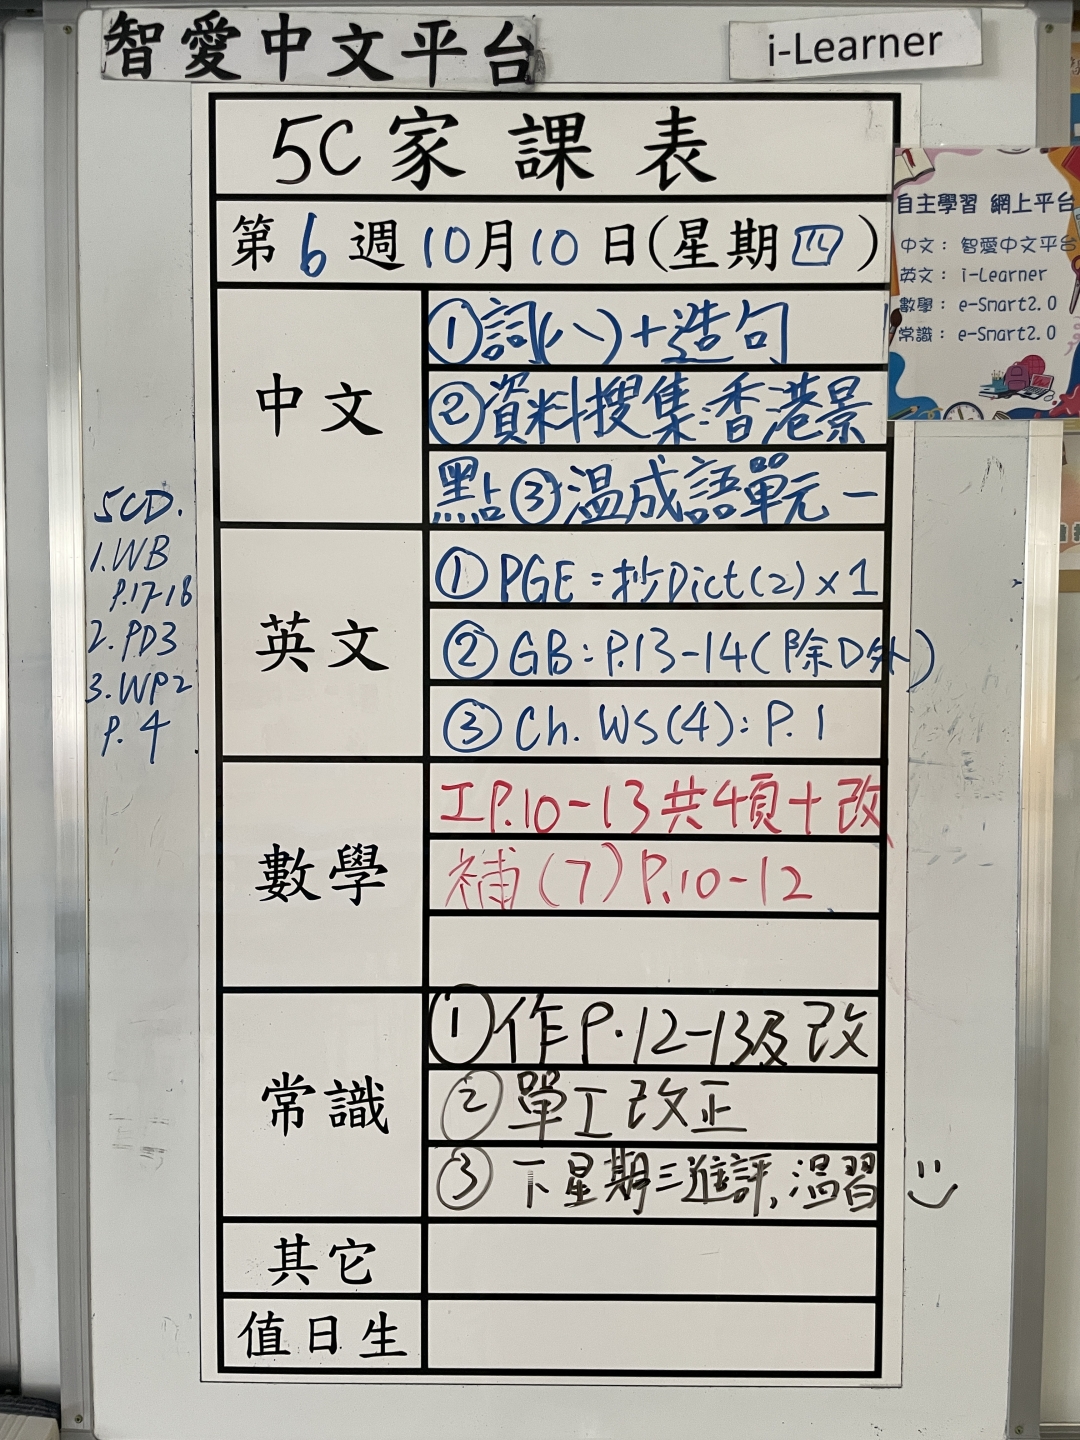 智愛中文平台
i-Learner
5C家課表
第6週10月10日(星期四)
中文
①詞(八)+造句
②資料搜集:香港景
點③溫成語單元一
英文
①PGE:抄Dict(2)x1
②GB:P.13-14(除D外)
③Ch. WS(4): P.1
數學
工P.10-13共4頁+改
補(7)P.10-12
常識
①作P.12-13及改
②單工改正
③下星期三進評,温習
其它
值日生
5CD.
1.WB
P.17-18
2.PD3
3.WP2
P.4
自主學習 網上平台
中文：智愛中文平台
英文：i-Learner
數學：e-Smart2.0
常識：e-Smart2.0